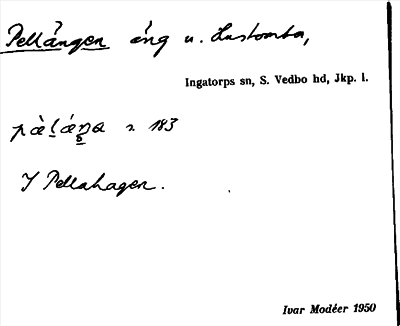 Pellången äng u. Lustomta,
Ingatorps sn, S. Vedbo hd, Jkp. l.
183
I Pellahagen.
Ivar Modéer 1950